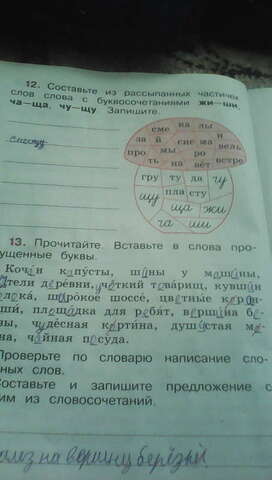 12. Составьте из рассыпанных частичек
слов слова с буквосочетаниями жи—ши,
ча—ща, чу—щу. Запишите.
сме на лы
за й сне ма и
про мы ро вель
ть на вёт встре
гру ту да чу
щу пла сту
ща жи
ча ши
13. Прочитайте. Вставьте в слова про-
ущенные буквы.
Кочан капусты, шины у машины,
тели деревни, чёткий товарищ, кувшин
лока, широкое шоссе, цветные каран-
ши, площадка для ребят, вершина бе-
зы, чудесная картина, душистая
на, чайная посуда.
Проверьте по словарю написание сло-
ных слов.
Составьте и запишите предложение с
им из словосочетаний.
на вершину берёзы.